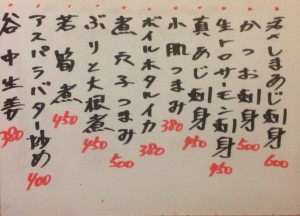 活〆しまあじ刺身 600
かつお刺身 500
生トロサーモン刺身 450
真あじ刺身 450
小肌つまみ 380
ボイルホタルイカ 380
煮穴子つまみ 500
ぶりと大根煮 450
若筍煮 450
アスパラバター炒め 400
谷中生姜 380